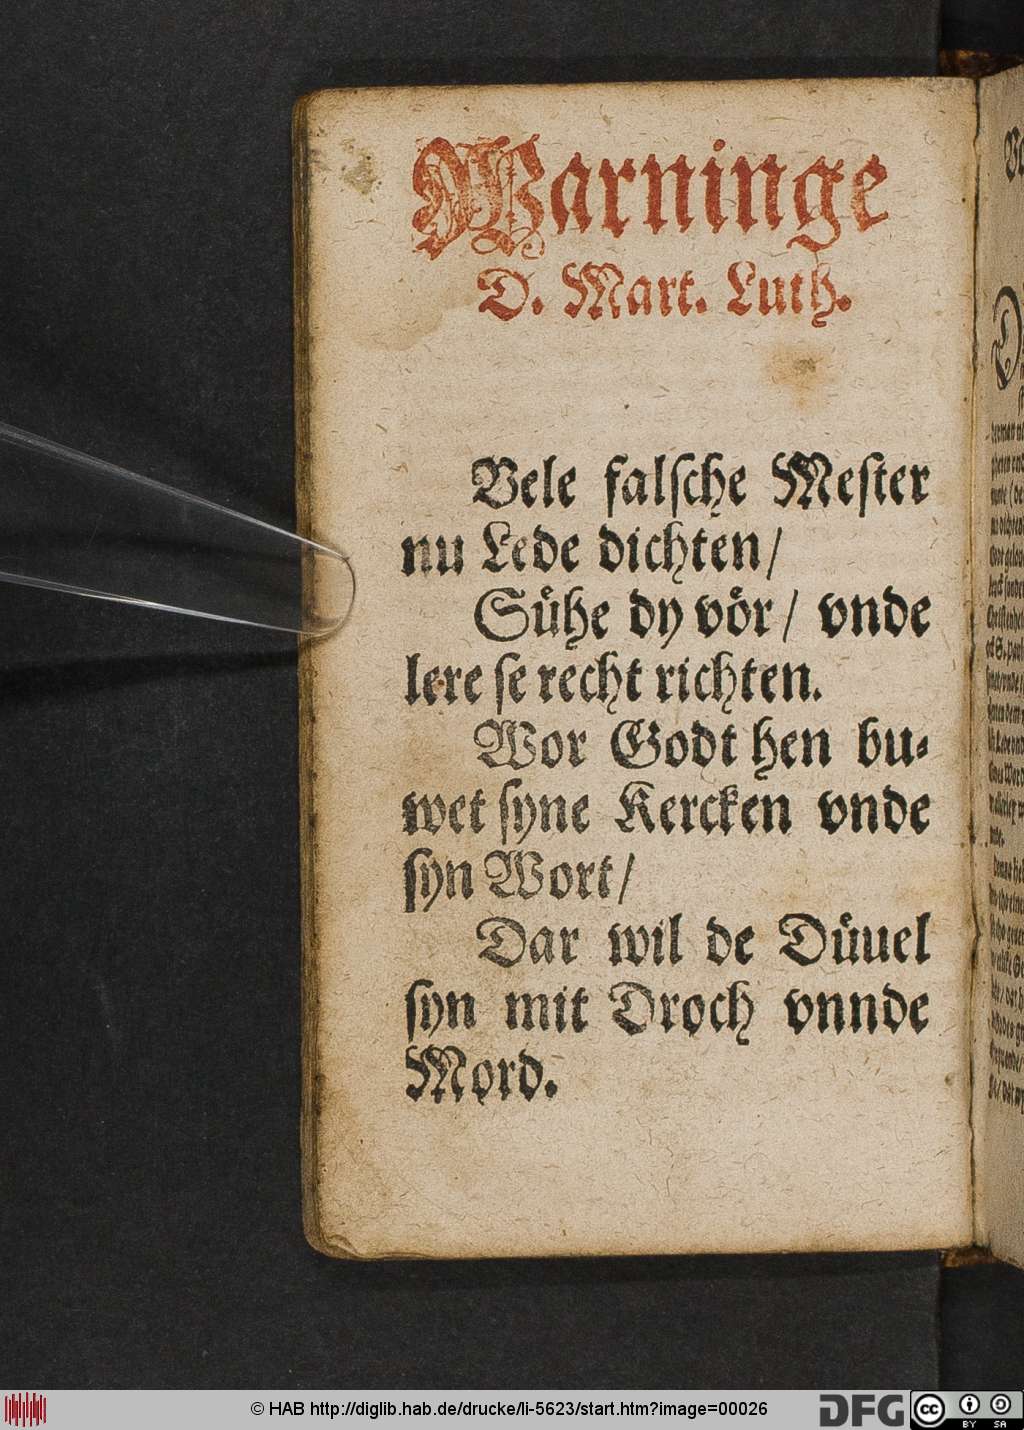 Warninge
D. Mart. Luth.
Vele falſche Meſter
nu Lede dichten/
Sühe dy vör/ vnde
lere ſe recht richten.
Wor Godt hen bu⸗
wet ſyne Kercken vnde
ſyn Wort/
Dar wil de Düuel
ſyn mit Droch vnnde
Mord.
© HAB http://diglib.hab.de/drucke/li-5623/start.htm?image=00026
DFG
cc
BY SA